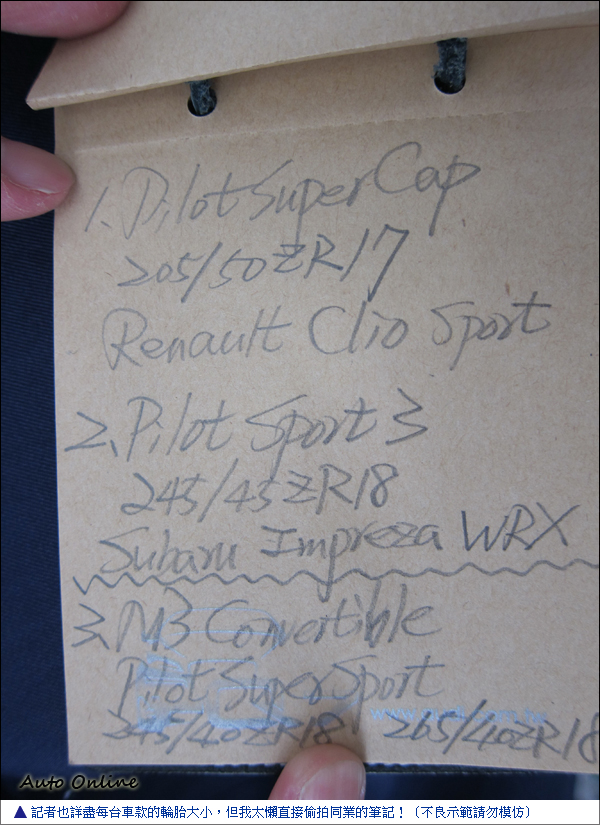 1. Pilot Super Cap
205/50ZR17
Renault Clio Sport
2、Pilot Sport 3
245/45ZR18
Subaru Impreza WRX
3、M3 Convertible
Pilot Super Sport
245/40ZR18 265/40ZR18
Auto Online
▲記者也詳盡每台車款的輪胎大小，但我太懶直接偷拍同業的筆記！〔不良示範請勿模仿〕